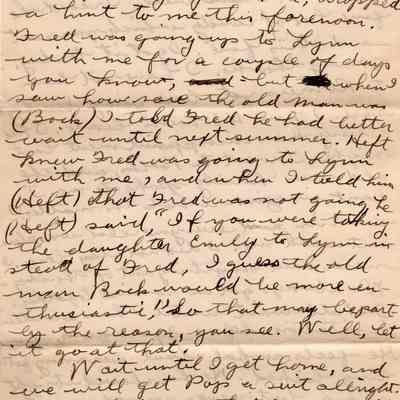 dropped
a hint to me this forenoon.
Fred was going up to Lynn
with me for a couple of days
you know, but when I
saw how sore the old man was
(Bock) I told Fred he had better
wait until next summer. Heft
knew Fred was going to Lynn
with me, and when I told him
(Heft) that Fred was not going he
(Heft) said, "If you were taking
the daughter Emily to Lynn in
stead of Fred, I guess the old
man Bock would be more en-
thusiastic," So that may be part
by the reason, you see. Well, let
it go at that.
Wait until I get home, and
we will get Pop's a suit allright.